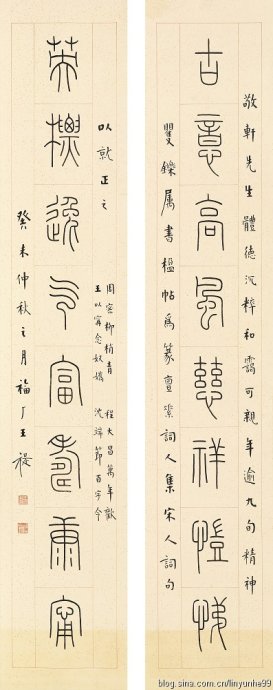 敬軒先生體德沉粹和靄可親年逾九旬精神
古意高風慈祥愷悌
矍鑠属書楹帖為篆詞人集宋人詞句
以就正之
周密柳梢青 程大昌萬年歡
王以寧念奴嬌 沈端節百字令
英標逸氣富壽康寧
癸未仲秋之月福厂王禔
blog.sina.com.cn/linyunhe99